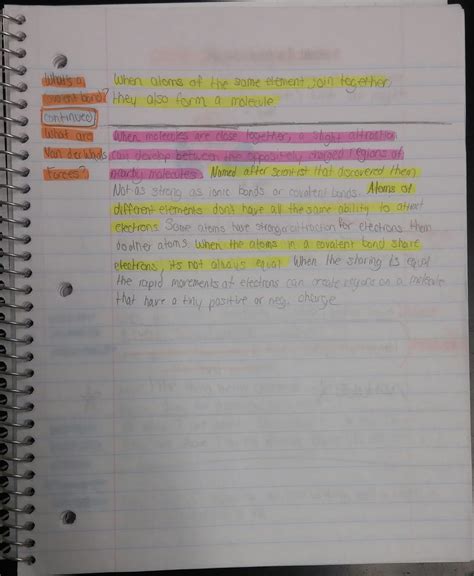 What's a
covalent bond?
continued
When atoms of the same element join together,
they also form a molecule
What are
Van der Waals
Forces?
When molecules are close together, a slight attraction
can develop between the oppositely charged regions of
nearby molecules. Named after scientist that discovered them
Not as strong as ionic bonds or covalent bonds. Atoms of
different elements don't have all the same ability to attract
electrons. Some atoms have stronger attraction for electrons than
do other atoms. When the atoms in a covalent bond share
electrons, it's not always equal. When the sharing is equal
the rapid movements of electrons can create regions on a molecule
that have a tiny positive or neg. charge.